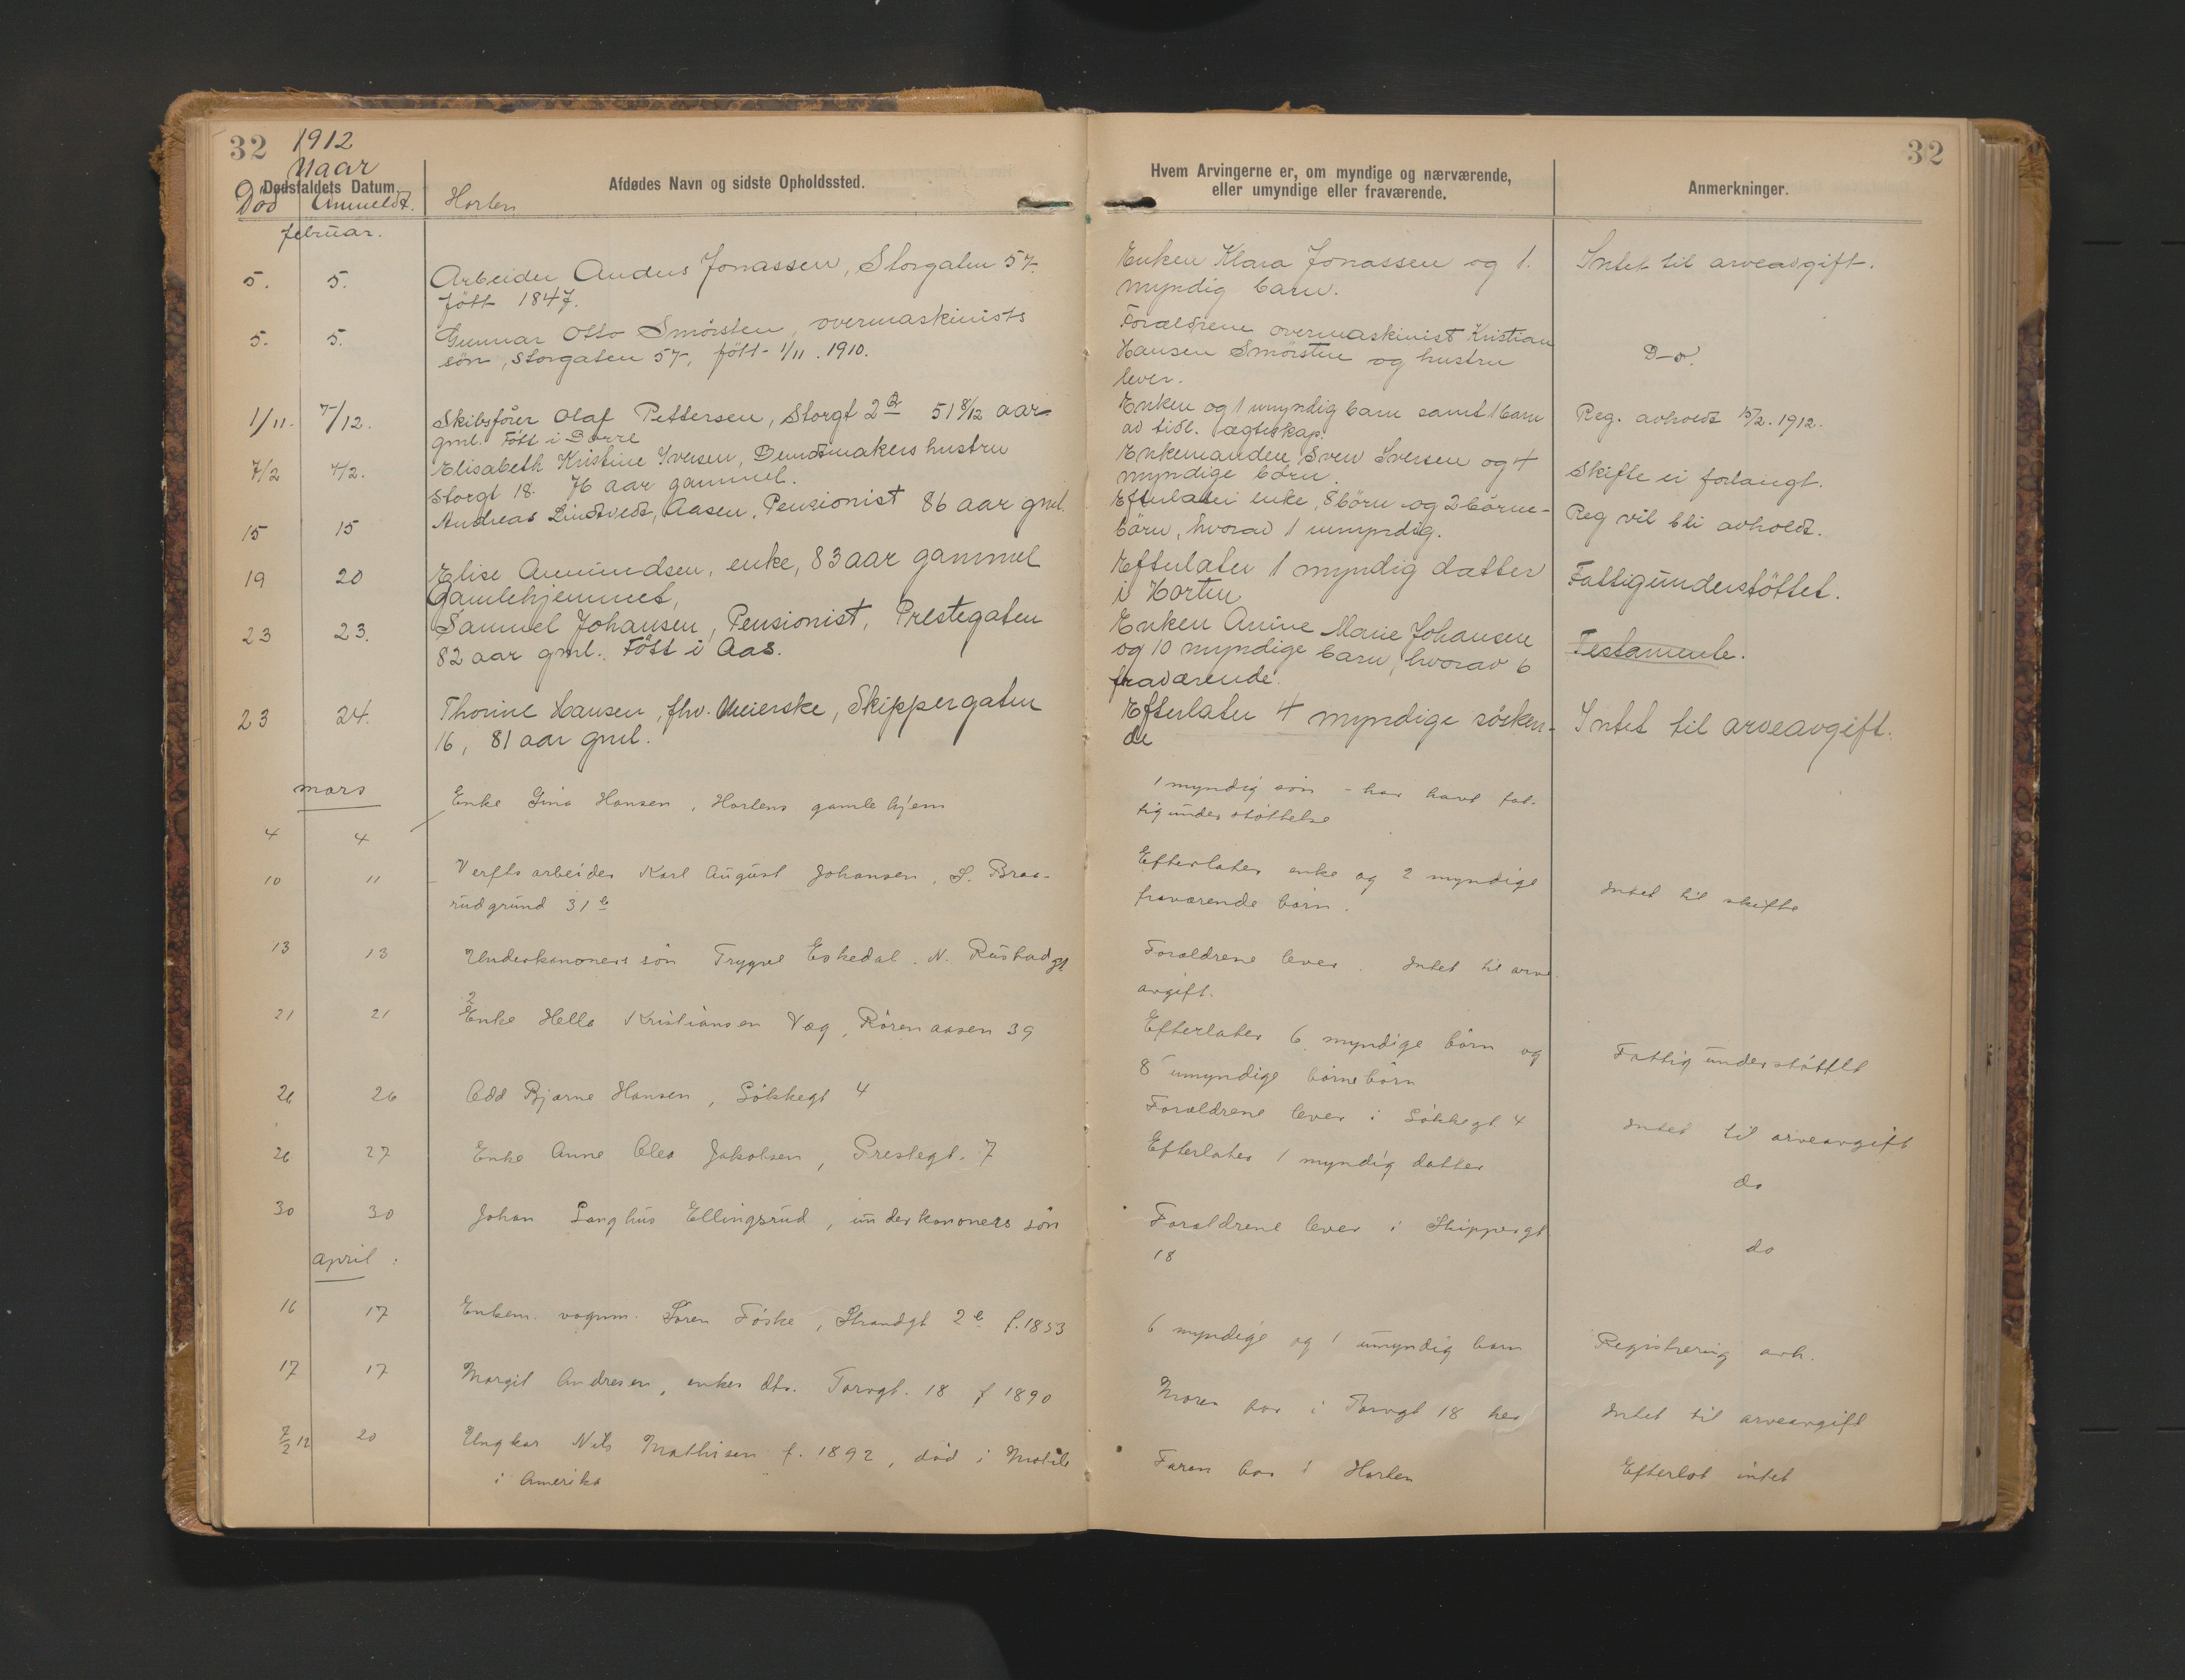 32 1912
Naar
Dødsfaldets Datum.
Død Anmeldt.
Afdødes Navn og sidste Opholdssted.
Horten
Hvem Arvingerne er, om myndige og nærværende,
eller umyndige eller fraværende.
Anmerkninger.
32
februar.
5. 5. Arbeider Anders Jonassen, Storgaten 57.
født 1847.
Enken Klara Jonassen og 1.
myndig barn.
Intet til arveavgift.
5. 5. Gunnar Otto Smørsten, overmaskinists
søn, Storgaten 57, født 1/11. 1910.
Forældrene overmaskinist Kristian
Hansen Smørsten og hustru
lever.
D-o.
1/11. 7/12. Skibsfører Olaf Pettersen, Storgt 2 51 8/12 aar
gml. Født i Borre
Enken og 1 umyndig barn samt 1 barn
av tidl. ægteskap.
Reg. avholdt 15/2. 1912.
7/2 7/2. Elisabeth Kristine Iversen, Bundtmakers hustru
Storgt 18. 76 aar gammel.
Enkemanden Sven Iversen og 4
myndige børn.
Skifte ei forlangt.
15 15 Andreas Lindtvedt, Aasen, Pensionist 86 aar gml.
Efterlater enke, 8 børn og 2 børne-
børn, hvorav 1 umyndig.
Reg vil bli avholdt.
19 20 Elise Amundsen, enke, 83 aar gammel
Gamlehjemmet,
Efterlater 1 myndig datter
i Horten
Fattigunderstøttet.
23 23. Samuel Johansen, Pensionist, Prestegaten
82 aar gml. Født i Aas.
Enken Anine Marie Johansen
og 10 myndige barn, hvorav 6
fraværende.
Testamente.
23 24. Thorine Hansen, fhv. Meierske, Skippergaten
16, 81 aar gml.
Efterlater 4 myndige søsken-
de
Intet til arveavgift.
mars
4 4 Enke Gina Hansen, Hortens gamle hjem
1 myndig søn - har havt fat-
tigunderstøttelse
10 11 Verftsarbeider Karl August Johansen, S. Braa-
rudgrund 31 b
Efterlater enke og 2 myndige
fraværende børn.
Intet til skifte
13 13 Underkanoners søn Trygve Eskedal. N. Rustadgt
Forældrene lever. Intet til arve
avgift.
21 21 Enke Helle Kristiansen Væg, Rørenaasen 39
Efterlater 6 myndige børn og
8 umyndige børnebørn
Fattigunderstøttet
26 26 Odd Bjarne Hansen, Løkkegt 4
Forældrene lever i Løkkegt 4
Intet til arveavgift
26 27 Enke Anne Olea Jakobsen, Prestegt. 7
Efterlater 1 myndig datter
do
30 30 Johan Langhus Ellingsrud, underkanoners søn
Forældrene lever i Skippergt
18
do
april.
16 17 Enkem. vognm. Søren Føske, Strandgt 2 b f. 1853
6 myndige og 1 umyndig barn
Registrering avh.
17 17 Margit Andresen, enkes dtr. Torvgt. 18 f 1890
Moren bor i Torvgt 18 her
Intet til arveavgift
7/2 12 20 Ungkar Nils Mathisen f. 1892, død i Mobile
i Amerika
Faren bor i Horten
Efterlot intet